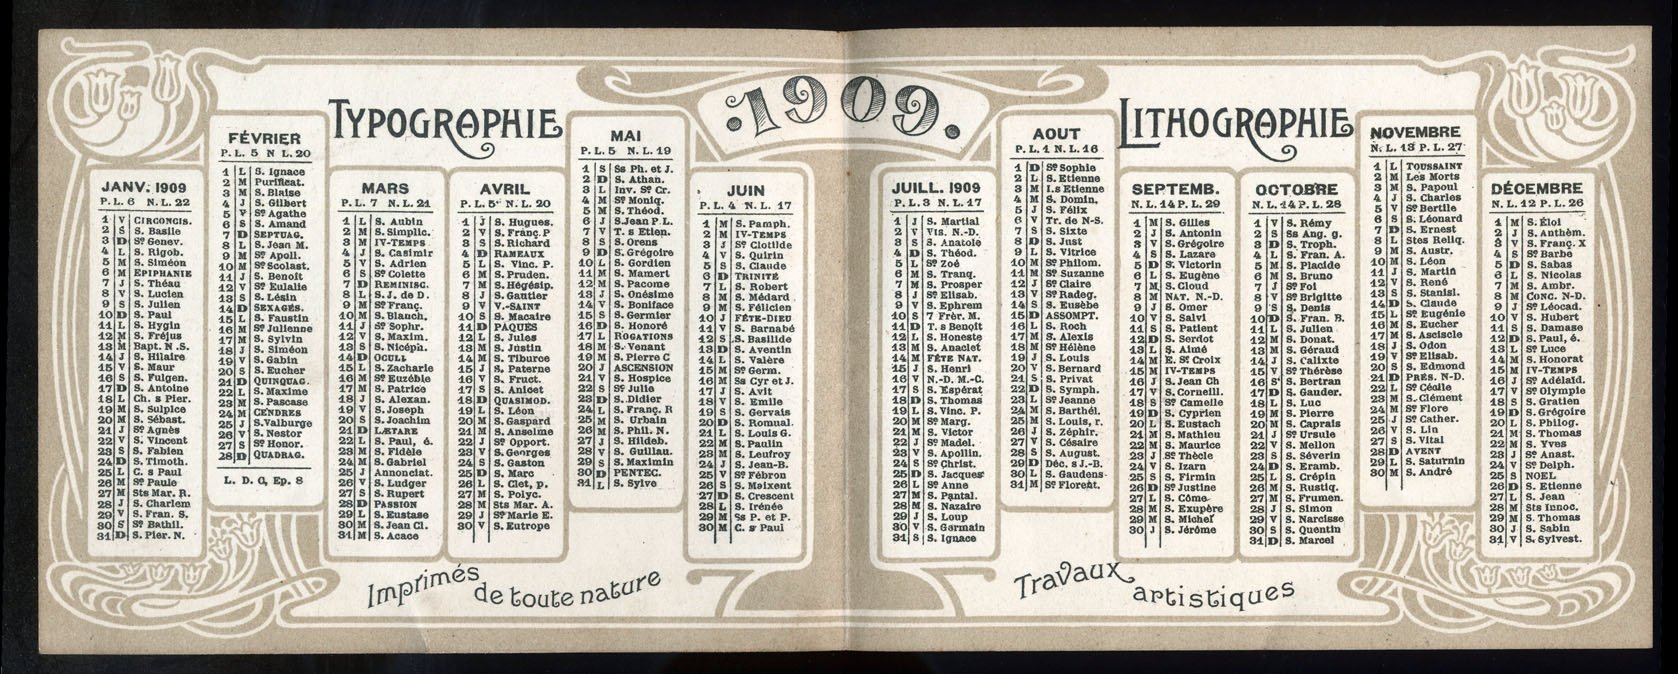 1909
TYPOGRAPHIE
LITHOGRAPHIE
JANV. 1909
P. L. 6 N. L. 22
1 V CIRCONCIS.
2 S S. Basile
3 D Sº Genev.
4 L S. Rigob.
5 M S. Siméon
6 M EPIPHANIE
7 J S. Théau
8 V S. Lucien
9 S S. Julien
10 D S. Paul
11 L S. Hygin
12 M S. Fréjus
13 M Bapt. N.S.
14 J S. Hilaire
15 V S. Maur
16 S S. Fulgen.
17 D S. Antoine
18 L Ch. s Pier.
19 M S. Sulpice
20 M S. Sébast.
21 J Sº Agnès
22 V S. Vincent
23 S S. Fabien
24 D S. Timoth.
25 L C. s Paul
26 M Sº Paule
27 M Sts Mar. R.
28 J S. Charlem
29 V S. Fran. S.
30 S Sº Bathil.
31 D S. Pier. N.
FÉVRIER
P. L. 5 N L. 20
1 L S. Ignace
2 M Purificat.
3 M S. Blaise
4 J S. Gilbert
5 V Sº Agathe
6 S S. Amand
7 D SEPTUAG.
8 L S. Jean M.
9 M Sº Apoll.
10 M Sº Scolast.
11 J S. Benoît
12 V Sº Eulalie
13 S S. Lésin
14 D SEXAGÉS.
15 L S. Faustin
16 M Sº Julienne
17 M S. Sylvin
18 J S. Siméon
19 V S. Gabin
20 S S. Eucher
21 D QUINQUAG.
22 L S. Maxime
23 M S. Pascase
24 M CENDRES
25 J S. Valburge
26 V S. Nestor
27 S Sº Honor.
28 D QUADRAG.
L. D. C, Ep. 8
MARS
P. L. 7 N. L. 21
1 L S. Aubin
2 M S. Simplic.
3 M IV-TEMPS
4 J S. Casimir
5 V S. Adrien
6 S Sº Colette
7 D REMINISC.
8 L S. J. de D.
9 M Sº Franç.
10 M S. Blanch.
11 J Sº Sophr.
12 V S. Maxim.
13 S S. Nicéph.
14 D OCULI
15 L S. Zacharie
16 M Sº Euzébie
17 M S. Patrice
18 J S. Alexan.
19 V S. Joseph
20 S S. Joachim
21 D LÆTARE
22 L S. Paul, é.
23 M S. Fidèle
24 M S. Gabriel
25 J Annonciat.
26 V S. Ludger
27 S S. Rupert
28 D PASSION
29 L S. Eustase
30 M S. Jean Cl.
31 M S. Acace
AVRIL
P. L. 5 N. L. 20
1 J S. Hugues.
2 V S. Franç. P
3 S S. Richard
4 D RAMEAUX
5 L S. Vinc. P.
6 M S. Pruden.
7 M S. Hégésip.
8 J S. Gautier
9 V V.-SAINT
10 S S. Macaire
11 D PÂQUES
12 L S. Jules
13 M S. Justin
14 M S. Tiburce
15 J S. Paterne
16 V S. Fruct.
17 S S. Anicet
18 D QUASIMOD.
19 L S. Léon
20 M S. Gaspard
21 M S. Anselme
22 J Sº Opport.
23 V S. Georges
24 S S. Gaston
25 D S. Marc
26 L S. Clet, p.
27 M S. Polyc.
28 M Sts Mar. A.
29 J Sº Marie E.
30 V S. Eutrope
MAI
P. L. 5 N. L. 19
1 S Ss Ph. et J.
2 D S. Athan.
3 L Inv. Sº Cr.
4 M Sº Moniq.
5 M S. Théod.
6 J S. Jean P. L.
7 V T. s Etien.
8 S S. Orens
9 D S. Grégoire
10 L S. Gordien
11 M S. Mamert
12 M S. Pacome
13 J S. Onésime
14 V S. Boniface
15 S S. Germier
16 D S. Honoré
17 L ROGATIONS
18 M S. Venant
19 M S. Pierre C
20 J ASCENSION
21 V S. Hospice
22 S Sº Julie
23 D S. Didier
24 L S. Franç. R
25 M S. Urbain
26 M S. Phil. N.
27 J S. Hildeb.
28 V S. Guillau.
29 S S. Maximin
30 D PENTEC.
31 L S. Sylve
JUIN
P. L. 4 N. L. 17
1 M S. Pamph.
2 M IV-TEMPS
3 J Sº Clotilde
4 V S. Quirin
5 S S. Claude
6 D TRINITÉ
7 L S. Robert
8 M S. Médard
9 M S. Félicien
10 J FÊTE-DIEU
11 V S. Barnabé
12 S S. Basilide
13 D S. Aventin
14 L S. Valère
15 M Sº Germ.
16 M Ss Cyr et J.
17 J S. Avit
18 V S. Emile
19 S S. Gervais
20 D S. Romual.
21 L S. Louis G.
22 M S. Paulin
23 M S. Leufroy
24 J S. Jean-B.
25 V Sº Fébron
26 S S. Maixent
27 D S. Crescent
28 L S. Irénée
29 M Ss P. et P.
30 M C. s Paul
JUILL. 1909
P. L. 3 N. L. 17
1 J S. Martial
2 V VIS. N.-D.
3 S S. Anatole
4 D S. Théod.
5 L Sº Zoé
6 M S. Tranq.
7 M S. Prosper
8 J Sº Elisab.
9 V S. Ephrem
10 S 7 Frèr. M.
11 D T. s Benoît
12 L S. Honeste
13 M S. Anaclet
14 M FÊTE NAT.
15 J S. Henri
16 V N.-D. M.-C.
17 S S. Espérat
18 D S. Thomas
19 L S. Vinc. P.
20 M Sº Marg.
21 M S. Victor
22 J Sº Madel.
23 V S. Apollin.
24 S Sº Christ.
25 D S. Jacques
26 L Sº Anne
27 M S. Pantal.
28 M S. Nazaire
29 J S. Loup
30 V S. Germain
31 S S. Ignace
AOUT
P. L. 1 N. L. 16
1 D Sº Sophie
2 L S. Etienne
3 M I. s Etienne
4 M S. Domin.
5 J S. Félix
6 V Tr. de N-S.
7 S S. Sixte
8 D S. Just
9 L S. Vitrice
10 M Sº Philom.
11 M Sº Suzanne
12 J Sº Claire
13 V Sº Radeg.
14 S S. Eusèbe
15 D ASSOMPT.
16 L S. Roch
17 M S. Alexis
18 M Sº Hélène
19 J S. Louis
20 V S. Bernard
21 S S. Privat
22 D S. Symph.
23 L Sº Jeanne
24 M S. Barthél.
25 M S. Louis, r.
26 J S. Zéphir.
27 V S. Césaire
28 S S. August.
29 D Déc. s J.-B.
30 L S. Gaudens
31 M Sº Florent.
SEPTEMB.
N. L. 14 P. L. 29
1 M S. Gilles
2 J S. Antonin
3 V S. Grégoire
4 S S. Lazare
5 D S. Victorin
6 L S. Eugène
7 M S. Cloud
8 M NAT. N.-D.
9 J S. Omer
10 V S. Salvi
11 S S. Patient
12 D S. Serdot
13 L S. Aimé
14 M E. Sº Croix
15 M IV-TEMPS
16 J S. Jean Ch
17 V S. Corneill.
18 S Sº Camelle
19 D S. Cyprien
20 L S. Eustach
21 M S. Mathieu
22 M S. Maurice
23 J Sº Thècle
24 V S. Izarn
25 S S. Firmin
26 D Sº Justine
27 L S. Côme
28 M S. Exupère
29 M S. Michel
30 J S. Jérôme
OCTOBRE
N. L. 14 P. L. 28
1 V S. Rémy
2 S Ss Ang. g.
3 D S. Troph.
4 L S. Fran. A.
5 M S. Placide
6 M S. Bruno
7 J Sº Foi
8 V Sº Brigitte
9 S S. Denis
10 D S. Fran. B.
11 L S. Julien
12 M S. Donat.
13 M S. Géraud
14 J S. Calixte
15 V Sº Thérèse
16 S S. Bertran
17 D S. Gauder.
18 L S. Luc
19 M S. Pierre
20 M S. Caprais
21 J Sº Ursule
22 V S. Mellon
23 S S. Séverin
24 D S. Eramb.
25 L S. Crépin
26 M S. Rustiq.
27 M S. Frumen.
28 J S. Simon
29 V S. Narcisse
30 S S. Quentin
31 D S. Marcel
NOVEMBRE
N. L. 13 P. L. 27
1 L TOUSSAINT
2 M Les Morts
3 M S. Papoul
4 J S. Charles
5 V Sº Bertile
6 S S. Léonard
7 D S. Ernest
8 L Stes Reliq.
9 M S. Austr.
10 M S. Léon
11 J S. Martin
12 V S. René
13 S S. Stanisl.
14 D S. Claude
15 L Sº Eugénie
16 M S. Eucher
17 M S. Asciscle
18 J S. Odon
19 V Sº Elisab.
20 S S. Edmond
21 D PRÉS. N-D.
22 L Sº Cécile
23 M S. Clément
24 M Sº Flore
25 J Sº Cather.
26 V S. Lin
27 S S. Vital
28 D AVENT
29 L S. Saturnin
30 M S. André
DÉCEMBRE
N. L. 12 P. L. 26
1 M S. Éloi
2 J S. Anthèm.
3 V S. Franç. X
4 S Sº Barbe
5 D S. Sabas
6 L S. Nicolas
7 M S. Ambr.
8 M CONC. N-D.
9 J Sº Léocad.
10 V S. Hubert
11 S S. Damase
12 D S. Paul, é.
13 L Sº Luce
14 M S. Honorat
15 M IV-TEMPS
16 J Sº Adélaïd.
17 V Sº Olympie
18 S S. Gratien
19 D S. Grégoire
20 L S. Philog.
21 M S. Thomas
22 M S. Yves
23 J Sº Anast.
24 V Sº Delph.
25 S NOEL
26 D S. Etienne
27 L S. Jean
28 M Sts Innoc.
29 M S. Thomas
30 J S. Sabin
31 V S. Sylvest.
Imprimés
de toute nature
Travaux
artistiques